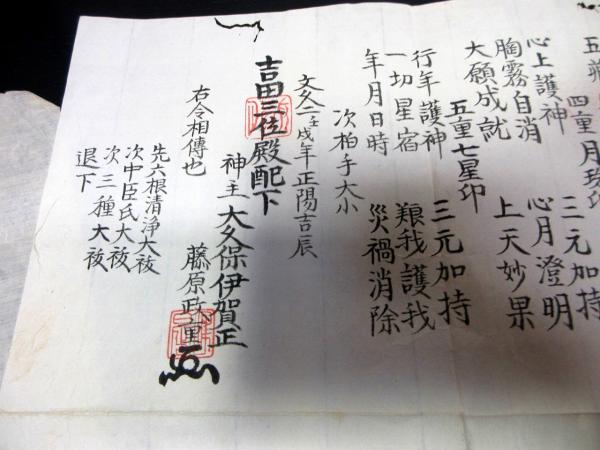 五
四重月珱印
心上護神 三元加持
胸霧自消 心月澄明
大願成就 上天妙果
五重七星印
行年護神 三元加持
一切星宿 我護我
年月日時 災禍消除
次柏手大小
文久二壬戌年正陽吉辰
吉田三位殿配下
神主大久保伊賀正
藤原政重
右令相傳也
先六根清浄大祓
次中臣氏大祓
次三種大祓
退下